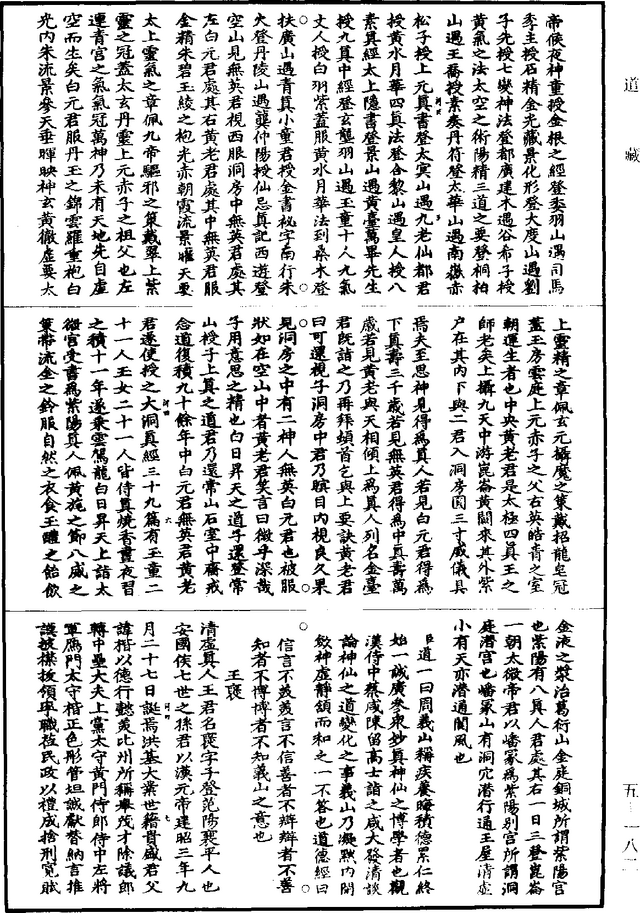 道藏
五—一八二
帝候夜神童授金根之經登委羽山遇司馬
季主授石精金光藏景化形登大度山遇劉
子先授七變神法登都廣建木遇谷希子授
黃氣之法太空之術陽精三道之要登桐柏
山遇王喬授素奏丹符登太華山遇南嶽赤
松子授上元真書登太冥山遇九老仙都君
授黃水月華四真法登合黎山遇皇人授八
素真經太上隱書登景山遇黃臺萬畢先生
授九真中經登玄壟羽山遇玉童十人九氣
丈人授白羽紫蓋服黃水月華法到桑木登
扶廣山遇青真小童君授金書祕字南行朱
火登丹陵山遇龔仲陽授仙忌真記西遊登
空山見無英君視西服洞房中無英君處其
左白元君處其右黃老君處其中無英君服
金精朱碧玉綾之袍光赤朝霞流景曜天要
太上靈氣之章佩九帝驅邪之策戴翠上紫
靈之冠蓋太玄丹靈上元赤子之祖父也左
運青宮之氣氣冠萬神乃未有天地先自虛
空而生矣白元君服丹玉之錦雲羅重袍白
光內朱流景參天垂暉映神玄黃徹虛要太
上靈精之章佩玄元攝魔之策戴招龍皂冠
蓋玉房雲庭上元赤子之父右英皓青之室
朝運生者也中央黃老君是太極四真王之
師老矣上攝九天中游崑崙黃闕來其外紫
戶在其內下與二君入洞房圓三寸威儀具
焉夫至思神見得爲真人若見白元君得爲
下真壽三千歲若見無英君得爲中真壽萬
歲若見黃老與天相傾上爲真人列名金臺
君既詣之乃再拜頓首乞與上要訣黃老君
曰可還視子洞房中君乃瞑目內視良久果
見洞房之中有二神人無英白元君也被服
狀如在空山中者黃老君笑言曰微乎深哉
子用意思之精也白日昇天之道子還登常
山授子上真之道君乃還常山石室中齋戒
念道復積九十餘年中白元君無英君黃老
君遂使授之大洞真經三十九篇有玉童二
十一人玉女二十一人皆侍真燒香晝夜習
之積十一年遂乘雲駕龍白日昇天上詣太
微宮受書爲紫陽真人佩黃旄之節八威之
策帶流金之鈴服自然之衣食玉醴之飴飲
金液之漿治葛衍山金庭銅城所謂紫陽宮
也紫陽有八真人君處其右一日三登崑崙
一朝太微帝君以嶓冢爲紫陽別宮所謂洞
庭潛宮也嶓冢山有洞穴潛行通王屋清虛
小有天亦潛通閬風也
臣道一曰周義山稱疾養晦積德累仁終
始一誠廣參衆妙真神仙之博學者也觀
漢侍中蔡咸陳留高士詣之咸大發清談
論神仙之道變化之事義山乃凝默內閉
斂神虛靜頷而和之一不答也道德經曰
信言不美美言不信善者不辯辯者不善
知者不博博者不知義山之意也
王褒
清虛真人王君名褒字子登范陽襄平人也
安國侯七世之孫君以漢元帝建昭三年九
月二十七日誕焉洪基大業世籍貴盛君父
諱楷以德行懿美比州所稱舉茂才除議郎
轉中壘大夫上黨太守黃門侍郎侍中左將
軍鴈門太守楷正色彤管坦誠獻替納言推
護披褋扳領率職莅民政以禮成捨刑寬賦